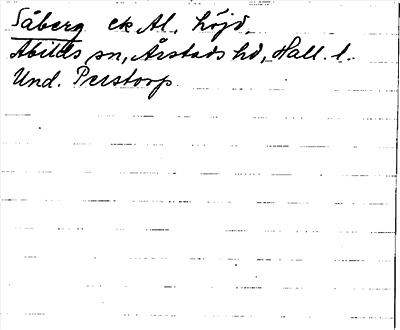 Såberg ek Al. höjd.
Abilds sn, Årstads hd, Hall. l.
Und. Perstorp